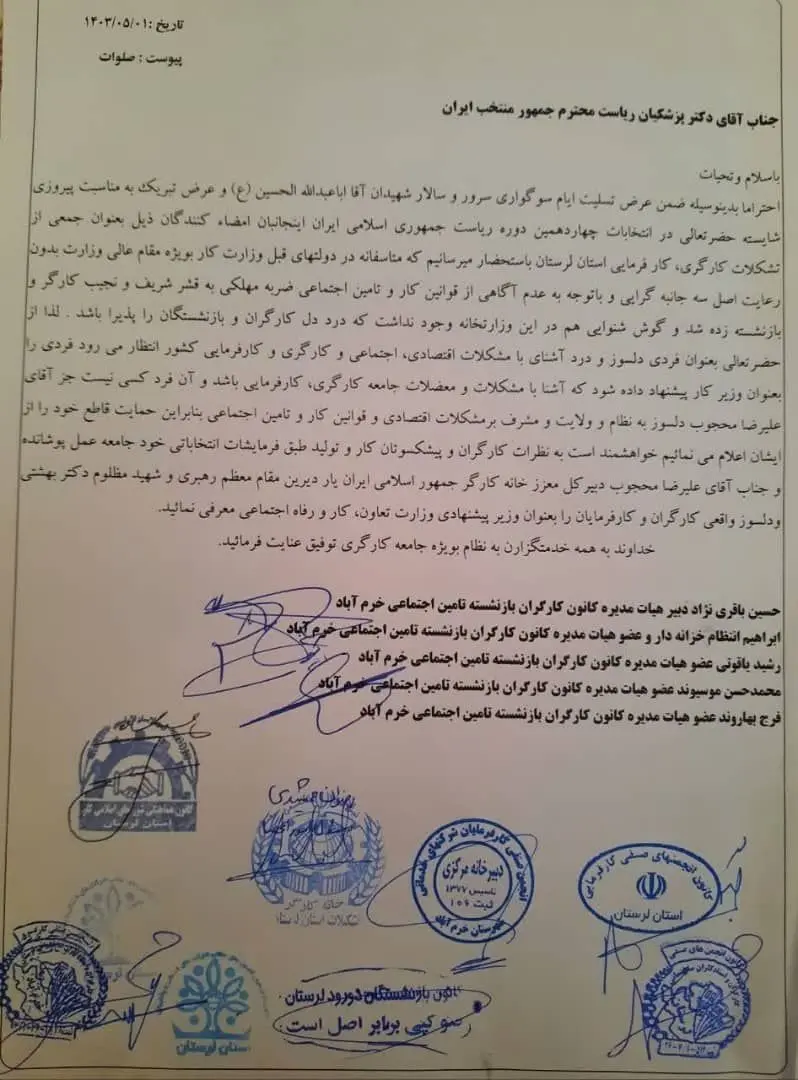 تاریخ :۱۴۰۳/۰۵/۰۱
پیوست : صلوات
جناب آقای دکتر پزشکیان ریاست محترم جمهور منتخب ایران
باسلام وتحیات
احتراما بدینوسیله ضمن عرض تسلیت ایام سوگواری سرور و سالار شهیدان آقا اباعبدالله الحسین (ع) و عرض تبریک به مناسبت پیروزی
شایسته حضرتعالی در انتخابات چهاردهمین دوره ریاست جمهوری اسلامی ایران اینجانبان امضاء کنندگان ذیل بعنوان جمعی از
تشکلات کارگری، کار فرمایی استان لرستان باستحضار میرسانیم که متاسفانه در دولتهای قبل وزارت کار بویژه مقام عالی وزارت بدون
رعایت اصل سه جانبه گرایی و باتوجه به عدم آگاهی از قوانین کار و تامین اجتماعی ضربه مهلکی به قشر شریف و نجیب کارگر و
بازنشسته زده شد و گوش شنوایی هم در این وزارتخانه وجود نداشت که درد دل کارگران و بازنشستگان را پذیرا باشد . لذا از
حضرتعالی بعنوان فردی دلسوز و درد آشنای با مشکلات اقتصادی، اجتماعی و کارگری و کارفرمایی کشور انتظار می رود فردی را
بعنوان وزیر کار پیشنهاد داده شود که آشنا با مشکلات و معضلات جامعه کارگری، کارفرمایی باشد و آن فرد کسی نیست جز آقای
علیرضا محجوب دلسوز به نظام و ولایت و مشرف برمشکلات اقتصادی و قوانین کار و تامین اجتماعی بنابراین حمایت قاطع خود را از
ایشان اعلام می نمائیم خواهشمند است به نظرات کارگران و پیشکسوتان کار و تولید طبق فرمایشات انتخاباتی خود جامعه عمل پوشانده
و جناب آقای علیرضا محجوب دبیرکل معزز خانه کارگر جمهور اسلامی ایران یار دیرین مقام معظم رهبری و شهید مظلوم دکتر بهشتی
ودلسوز واقعی کارگران و کارفرمایان را بعنوان وزیر پیشنهادی وزارت تعاون، کار و رفاه اجتماعی معرفی نمائید.
خداوند به همه خدمتگزارن به نظام بویژه جامعه کارگری توفیق عنایت فرمائید.
حسین باقری نژاد دبیر هیات مدیره کانون کارگران بازنشسته تامین اجتماعی خرم آباد
ابراهیم انتظام خزانه دار و عضو هیات مدیره کانون کارگران بازنشسته تامین اجتماعی خرم آباد
رشید یاقوتی عضو هیات مدیره کانون کارگران بازنشسته تامین اجتماعی خرم آباد
محمدحسن موسیوند عضو هیات مدیره کانون کارگران بازنشسته تامین اجتماعی خرم آباد
فرج بهاروند عضو هیات مدیره کانون کارگران بازنشسته تامین اجتماعی خرم آباد
کانون هماهنگی شوراهای اسلامی کار
استان لرستان
خانه کارگر
تشکیلات استان لرستان
انجمن صنفی کارفرمایان شرکتهای خدماتی
دبیرخانه مرکزی
تاسیس ۱۳۷۷
ثبت ۱۰۶
شهرستان خرم آباد
کانون انجمنهای صنفی کارفرمایی
استان لرستان
کانون انجمن های صنفی
استان لرستان
کانون بازنشستگان دورود لرستان
فتوکپی برابر اصل است